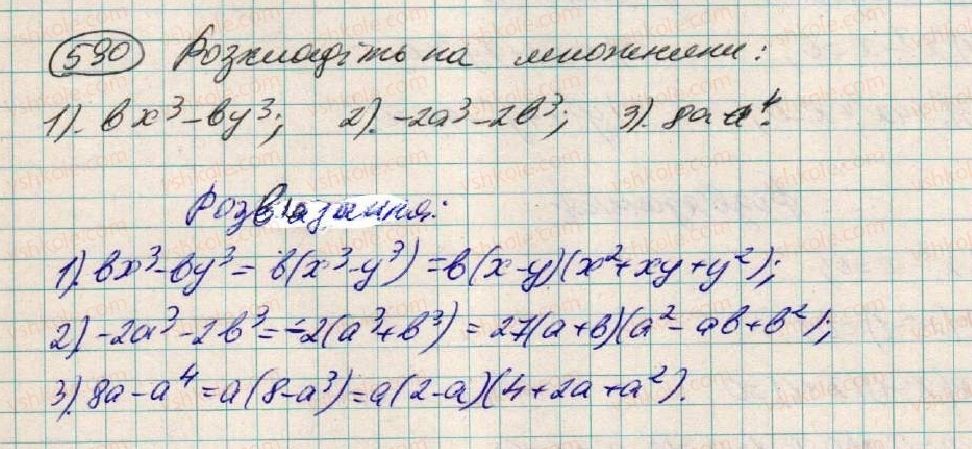 590 Розкладіть на множники:
1). bx³-by³; 2). -2a³-2b³; 3). 8a-a⁴.
Розв'язання:
1). bx³-by³ = b(x³-y³) = b(x-y)(x²+xy+y²);
2). -2a³-2b³ = -2(a³+b³) = 27(a+b)(a²-ab+b²);
3). 8a-a⁴ = a(8-a³) = a(2-a)(4+2a+a²).